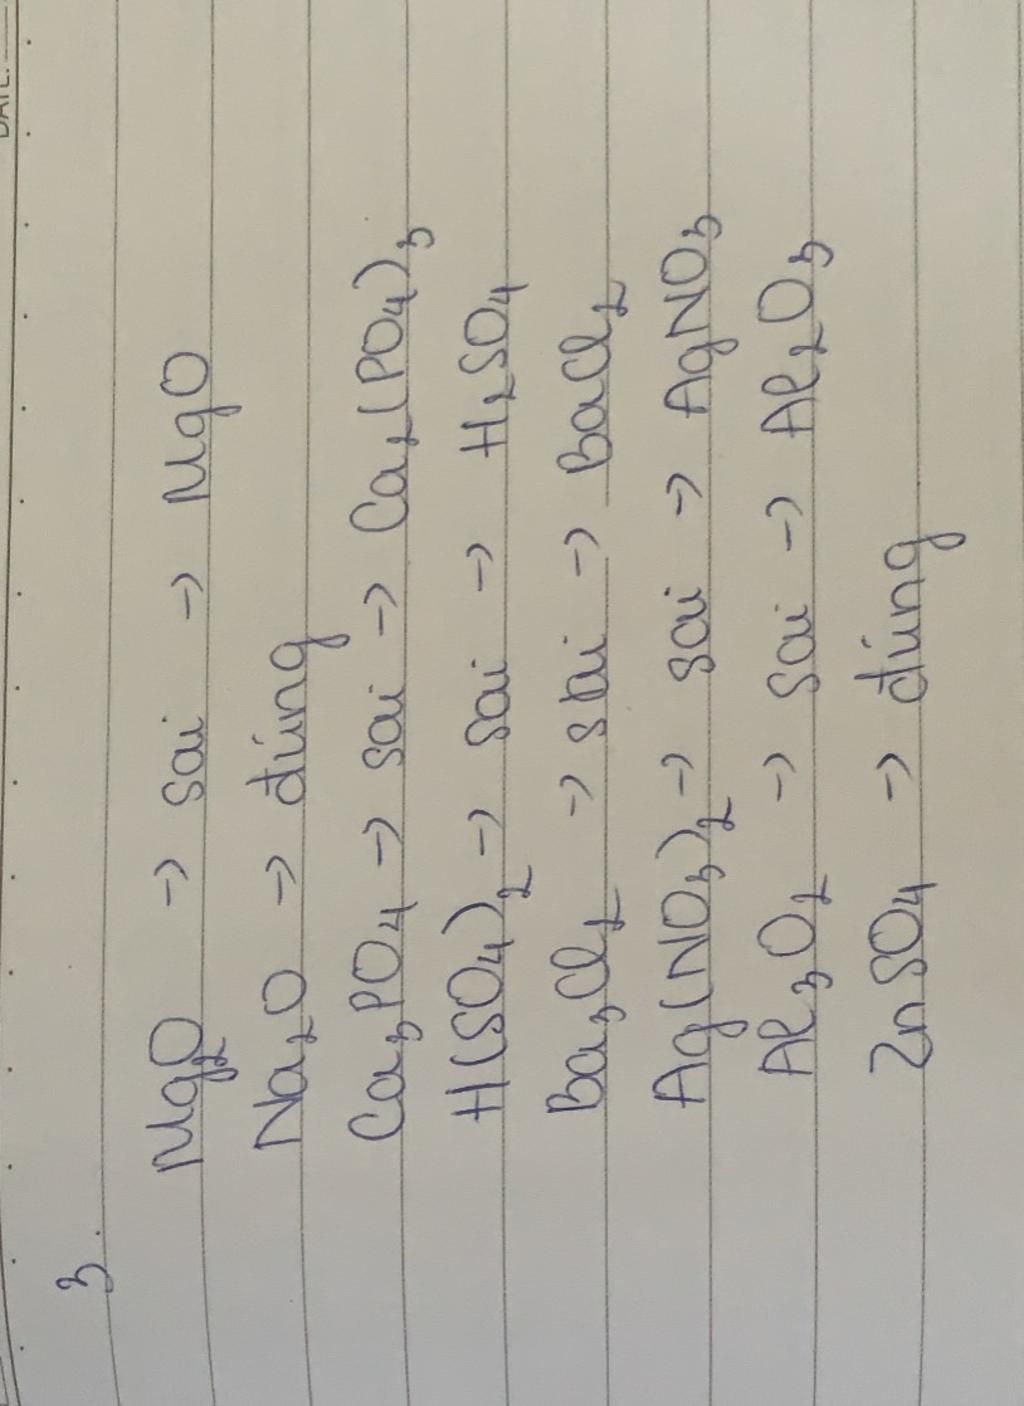 DATE:
3.
Mg₂O → sai → MgO
Na₂O → đúng
Ca₃PO₄ → sai → Ca₂(PO₄)₃
H(SO₄)₂ → sai → H₂SO₄
Ba₃Cl₂ → sai → BaCl₂
Ag(NO₃)₂ → sai → AgNO₃
Al₃O₂ → sai → Al₂O₃
ZnSO₄ → đúng